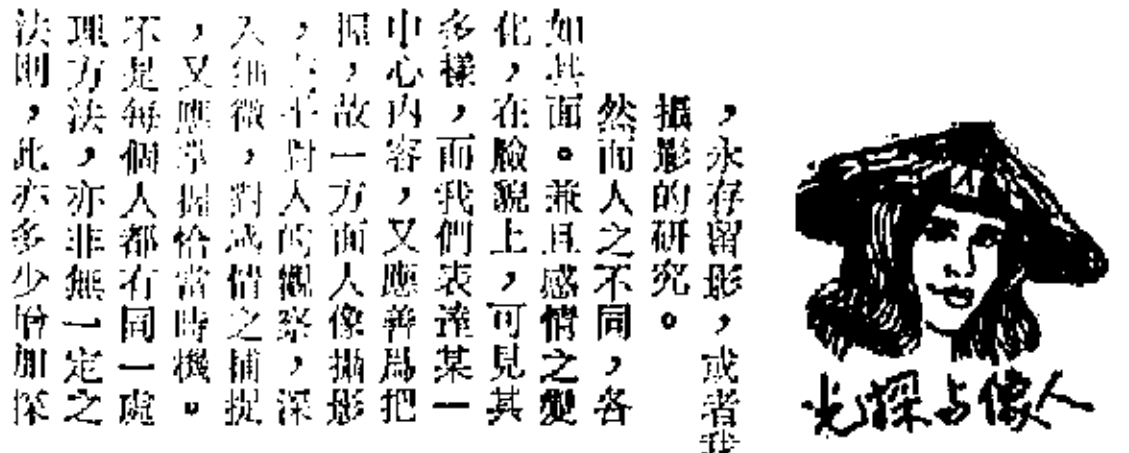 人像与採光
，永存留影，或者我
攝影的研究。
然而人之不同，各
如其面。兼且感情之變
化，在臉貌上，可見其
多樣，而我們表達某一
中心內容，又應善爲把
握，故一方面人像攝影
，在乎對人的觀察，深
入細微，對感情之捕捉
，又應掌握恰當時機。
不是每個人都有同一處
理方法，亦非無一定之
法則，此亦多少增加採